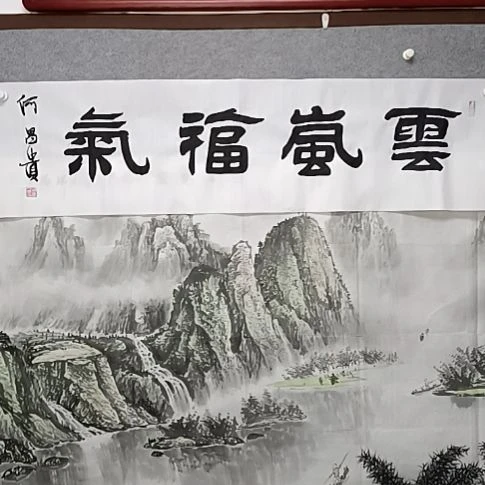 雲嵐福氣
何昌貴